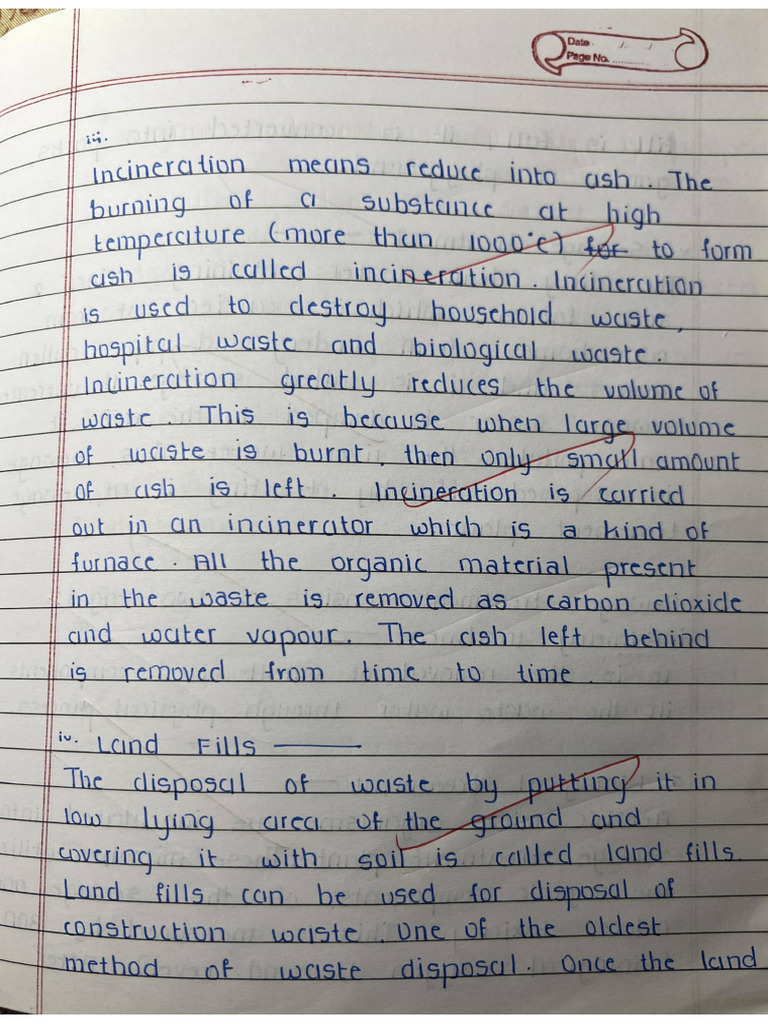 Date
Page No.
iii.
Incineration means reduce into ash. The
burning of a substance at high
temperature (more than 1000°c) for to form
ash is called incineration. Incineration
is used to destroy household waste,
hospital waste and biological waste.
Incineration greatly reduces the volume of
waste. This is because when large volume
of waste is burnt, then only small amount
of ash is left. Incineration is carried
out in an incinerator which is a kind of
furnace. All the organic material present
in the waste is removed as carbon dioxide
and water vapour. The ash left behind
is removed from time to time.
iv. Land Fills
The disposal of waste by putting it in
low lying area of the ground and
covering it with soil is called land fills.
Land fills can be used for disposal of
construction waste. One of the oldest
method of waste disposal. Once the land